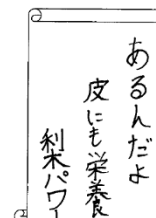 あるんだよ
皮にも栄養
利木パワー